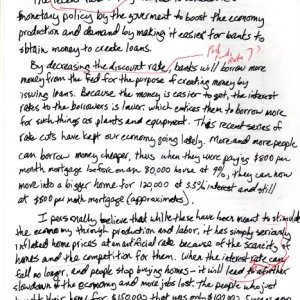 monetary policy by the goverment to boost the economy
production and demand by making it easier for banks to
obtain money to create loans.
By decreasing the discount rate, banks will borrow more
money from the Fed for the purpose of creating money by
issuing loans. Because the money is easier to get, the interest
rates to the borrowers is lower, which entices them to borrow more
for such things as plants and equipment. This recent series of
rate cuts have kept our economy going lately. More and more people
can borrow money cheaper, thus when they were paying $800 per
month mortgage before on an 80,000 house at 9%, they can now
move into a bigger home for 120,000 at 5.5% interest and still
at $800 per month mortgage (approximates).
I personally believe that while these have been meant to stimulate
the economy through production and labor, it has simply seriously
inflated home prices at an artificial rate because of the scarcity of
homes and the competition for them. When the interest rate can
fall no longer, and people stop buying homes - it will lead to a further
slowdown of the economy and more jobs lost. The people who just
bought their home for $150,000 that was only